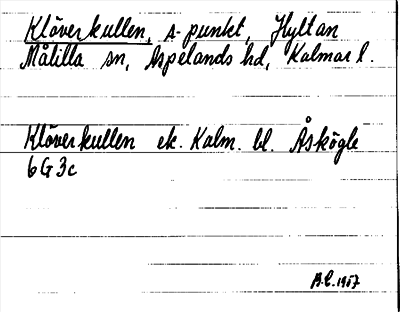 Klöverkullen, s-punkt, Hyltan
Målilla sn, Aspelands hd, Kalmar l.
Klöverkullen ek. Kalm. bl. Åskögle
6G3c
B.E. 1957